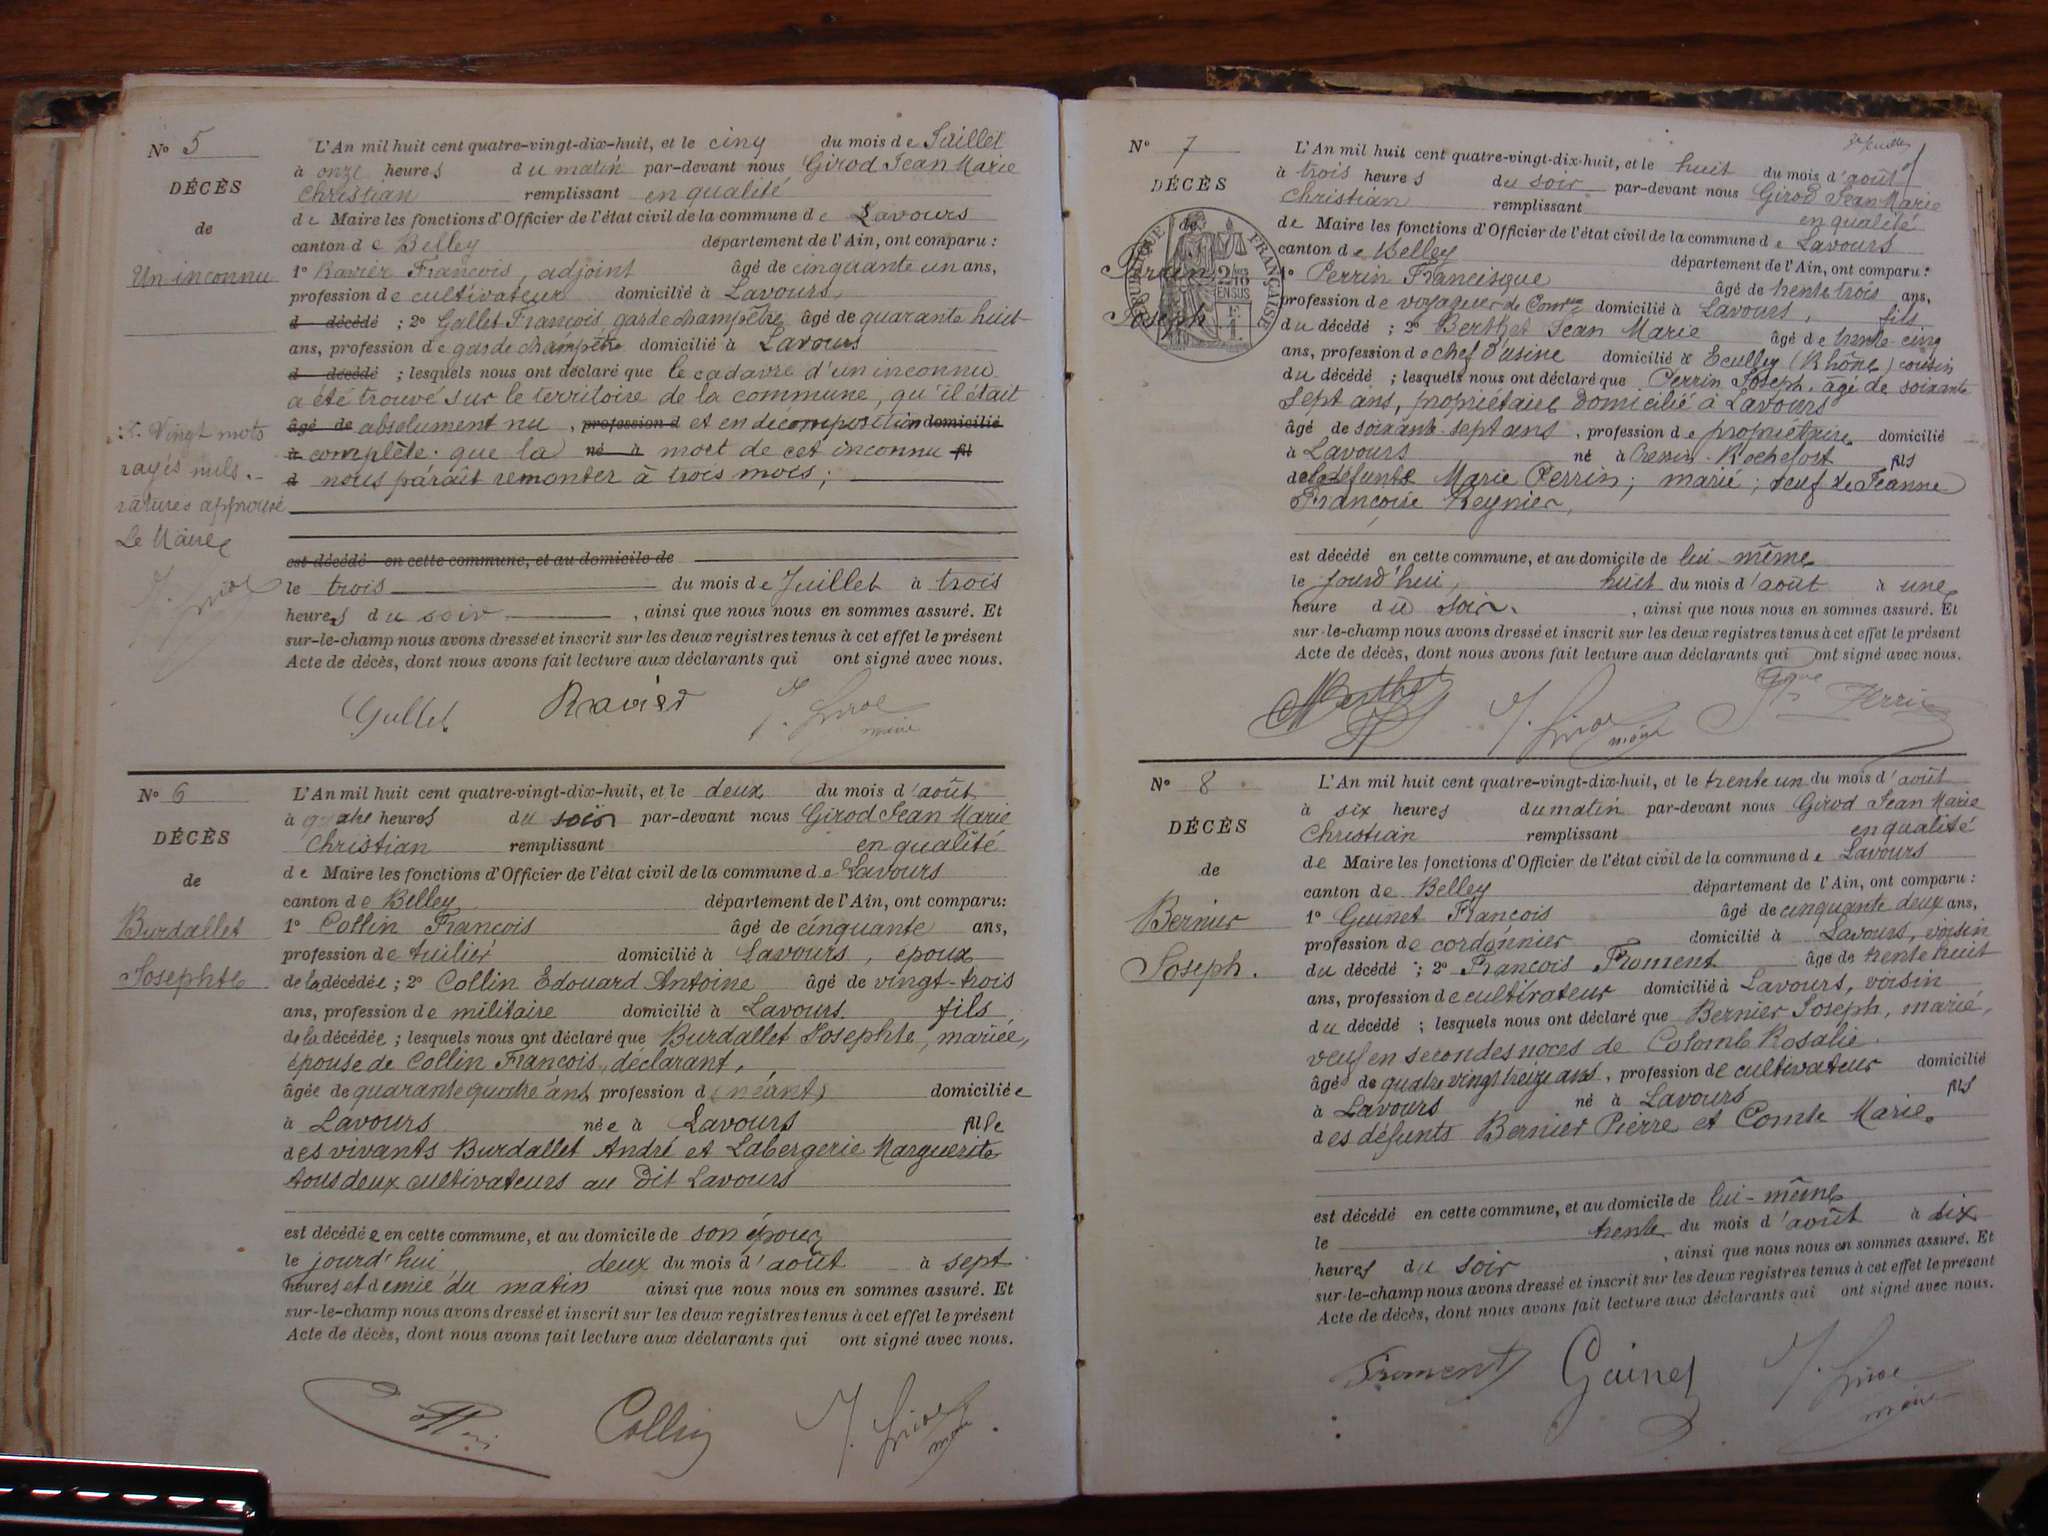 N° 5
DÉCÈS
de
Un inconnu
L'An mil huit cent quatre-vingt-dix-huit, et le cinq du mois de Juillet
à onze heures du matin par-devant nous Girod Jean Marie
Christian remplissant en qualité
de Maire les fonctions d'Officier de l'état civil de la commune de Lavours
canton de Belley département de l'Ain, ont comparu :
1° Ravier François, adjoint âgé de cinquante un ans,
profession de cultivateur domicilié à Lavours,
d décédé ; 2° Gallet François, garde champêtre âgé de quarante huit
ans, profession de garde champêtre domicilié à Lavours
d décédé ; lesquels nous ont déclaré que le cadavre d'un inconnu
a été trouvé sur le territoire de la commune, qu'il était
âgé de absolument nu, profession d et en décomposition domicilié
à complète. que la né à mort de cet inconnu fil
d nous paraît remonter à trois mois;
Vingt mots
rayés nuls.
ratures approuvé
Le Maire
J. Girod
est décédé en cette commune, et au domicile de
le trois du mois de Juillet à trois
heures du soir, ainsi que nous nous en sommes assuré. Et
sur-le-champ nous avons dressé et inscrit sur les deux registres tenus à cet effet le présent
Acte de décès, dont nous avons fait lecture aux déclarants qui ont signé avec nous.
Gallet Ravier J. Girod
maire
N° 6
DÉCÈS
de
Burdallet
Josephte
L'An mil huit cent quatre-vingt-dix-huit, et le deux du mois d'août
à quatre heures du soir par-devant nous Girod Jean Marie
Christian remplissant en qualité
de Maire les fonctions d'Officier de l'état civil de la commune de Lavours
canton de Belley département de l'Ain, ont comparu:
1° Collin François âgé de cinquante ans,
profession de tuilier domicilié à Lavours, époux
de la décédée ; 2° Collin Edouard Antoine âgé de vingt-trois
ans, profession de militaire domicilié à Lavours. fils
de la décédée ; lesquels nous ont déclaré que Burdallet Josephte, mariée,
épouse de Collin François, déclarant,
âgée de quarante quatre ans, profession d (néant) domiciliée
à Lavours née à Lavours fille
des vivants Burdallet André et Labergerie Marguerite
tous deux cultivateurs au dit Lavours
est décédée en cette commune, et au domicile de son époux
le jourd'hui deux du mois d'août à sept
heures et demie du matin ainsi que nous nous en sommes assuré. Et
sur-le-champ nous avons dressé et inscrit sur les deux registres tenus à cet effet le présent
Acte de décès, dont nous avons fait lecture aux déclarants qui ont signé avec nous.
Collin J. Girod
maire
N° 7
DÉCÈS
de
Perrin
Joseph
RÉPUBLIQUE FRANÇAISE
2/10
EN SUS
L'An mil huit cent quatre-vingt-dix-huit, et le huit du mois d'août
à trois heures du soir par-devant nous Girod Jean Marie
Christian remplissant en qualité
de Maire les fonctions d'Officier de l'état civil de la commune de Lavours
canton de Belley département de l'Ain, ont comparu :
1° Perrin Francisque âgé de trente trois ans,
profession de voyageur de Comce domicilié à Lavours, fils
du décédé ; 2° Berthet Jean Marie âgé de trente-cinq
ans, profession de chef d'usine domicilié à Ecully (Rhône) cousin
du décédé ; lesquels nous ont déclaré que Perrin Joseph, âgé de soixante
sept ans, propriétaire domicilié à Lavours
âgé de soixante-sept ans, profession de propriétaire domicilié
à Lavours né à Rochefort fils
de la défunte Marie Perrin; marié; veuf de Jeanne
Françoise Reynier,
est décédé en cette commune, et au domicile de lui-même
le jourd'hui, huit du mois d'août à une
heure du soir. , ainsi que nous nous en sommes assuré. Et
sur-le-champ nous avons dressé et inscrit sur les deux registres tenus à cet effet le présent
Acte de décès, dont nous avons fait lecture aux déclarants qui ont signé avec nous.
Berthet J. Girod Perrin
maire
N° 8
DÉCÈS
de
Bernier
Joseph.
L'An mil huit cent quatre-vingt-dix-huit, et le trente un du mois d'août
à six heures du matin par-devant nous Girod Jean Marie
Christian remplissant en qualité
de Maire les fonctions d'Officier de l'état civil de la commune de Lavours
canton de Belley département de l'Ain, ont comparu :
1° Guinet François âgé de cinquante deux ans,
profession de cordonnier domicilié à Lavours, voisin
du décédé ; 2° François Froment âgé de trente huit
ans, profession de cultivateur domicilié à Lavours, voisin
du décédé ; lesquels nous ont déclaré que Bernier Joseph, marié,
veuf en secondes noces de Colomb Rosalie.
âgé de quatre vingt treize ans, profession de cultivateur domicilié
à Lavours né à Lavours fils
des défunts Bernier Pierre et Comte Marie.
est décédé en cette commune, et au domicile de lui-même
le trente du mois d'août à dix
heures du soir, ainsi que nous nous en sommes assuré. Et
sur-le-champ nous avons dressé et inscrit sur les deux registres tenus à cet effet le présent
Acte de décès, dont nous avons fait lecture aux déclarants qui ont signé avec nous.
Froment Guinet J. Girod
maire